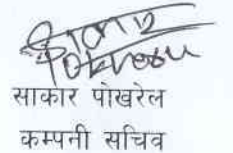 साकार पोखरेल
कम्पनी सचिव